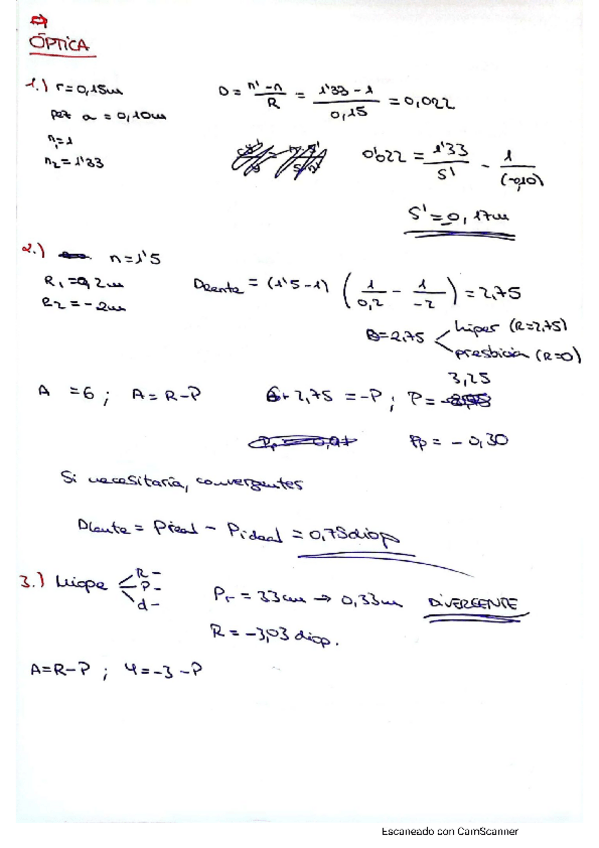 ÓPTICA
1.) r=0,15m D = n'-n / R = 1'33-1 / 0,15 = 0,022
pez a = 0,10m
n₁=1
n₂=1'33 0'022 = 1'33 / S' - 1 / (-0,10)
S' = 0,17m
2.) n=1'5
R₁=0,2m Dlente = (1'5-1) ( 1/0,2 - 1/-2 ) = 2,75
R₂=-2m
B=2,75 hiper (R=2,75)
presbicia (R=0)
3,25
A =6 ; A=R-P 6+2,75 =-P ; P=-
Pp = -0,30
Si necesitaría, convergentes
Dlente = Preal - Pideal = 0,75 diop
3.) Miope R-
P-
d-
Pr = 33cm → 0,33m DIVERGENTE
R = -3,03 diop.
A=R-P ; 4=-3-P
Escaneado con CamScanner